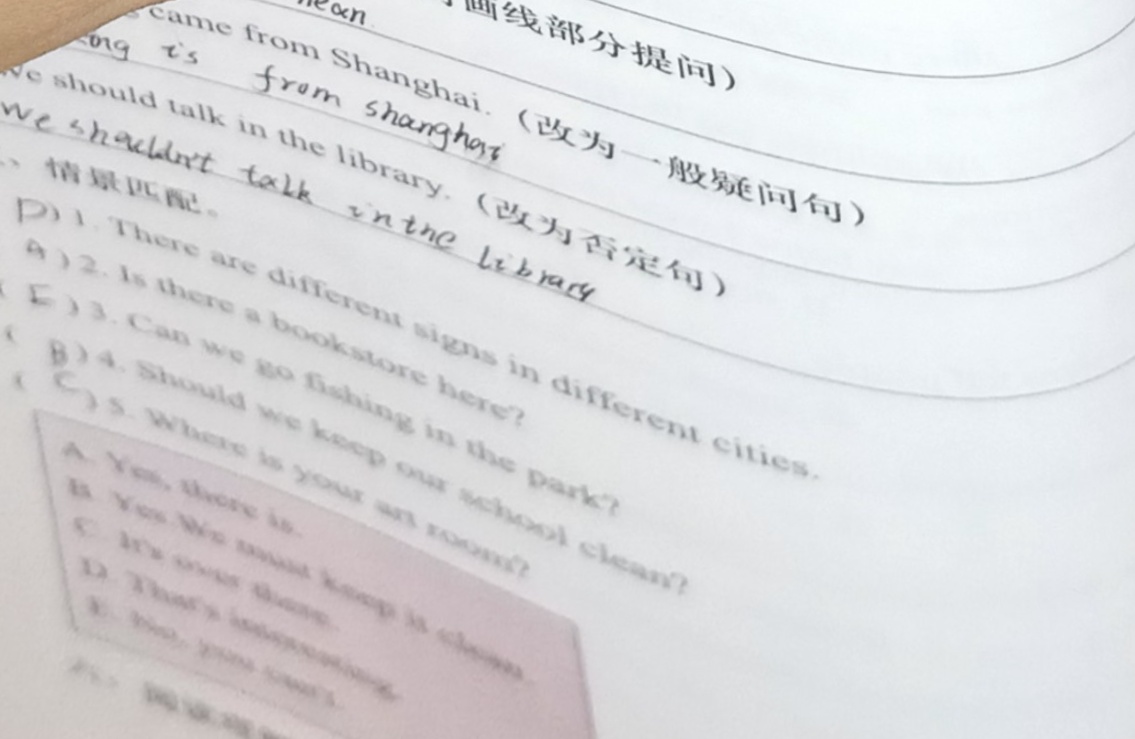 画线部分提问）
came from Shanghai.（改为一般疑问句）
is from shanghai
We should talk in the library.（改为否定句）
We shouldn't talk in the library
情景匹配。
D ) 1. There are different signs in different cities.
A ) 2. Is there a bookstore here?
( E ) 3. Can we go fishing in the park?
( B ) 4. Should we keep our school clean?
( C ) 5. Where is your art room?
A. Yes, there is.
B. Yes. We must keep it clean.
C. It's over there.
D. That's interesting.
E. No, you can't.